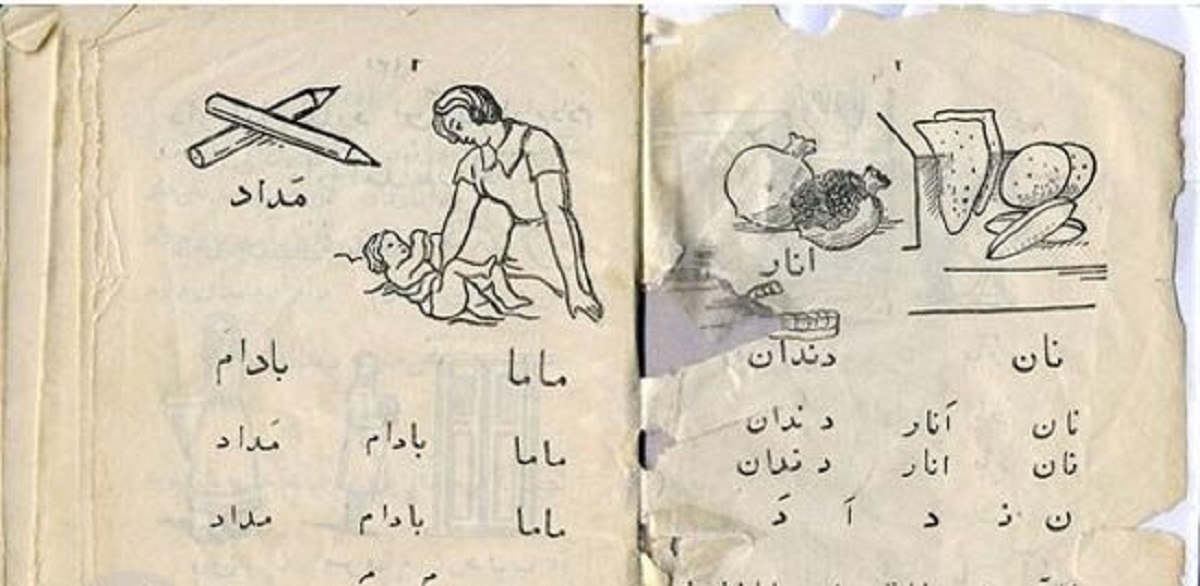 ۲
انار
نان دندان
نان اَنار د ندان
نان انار د ندان
ن نـ د اَ دَ
۳
مَداد
ماما بادام
ماما بادام مَداد
ماما بادام مداد